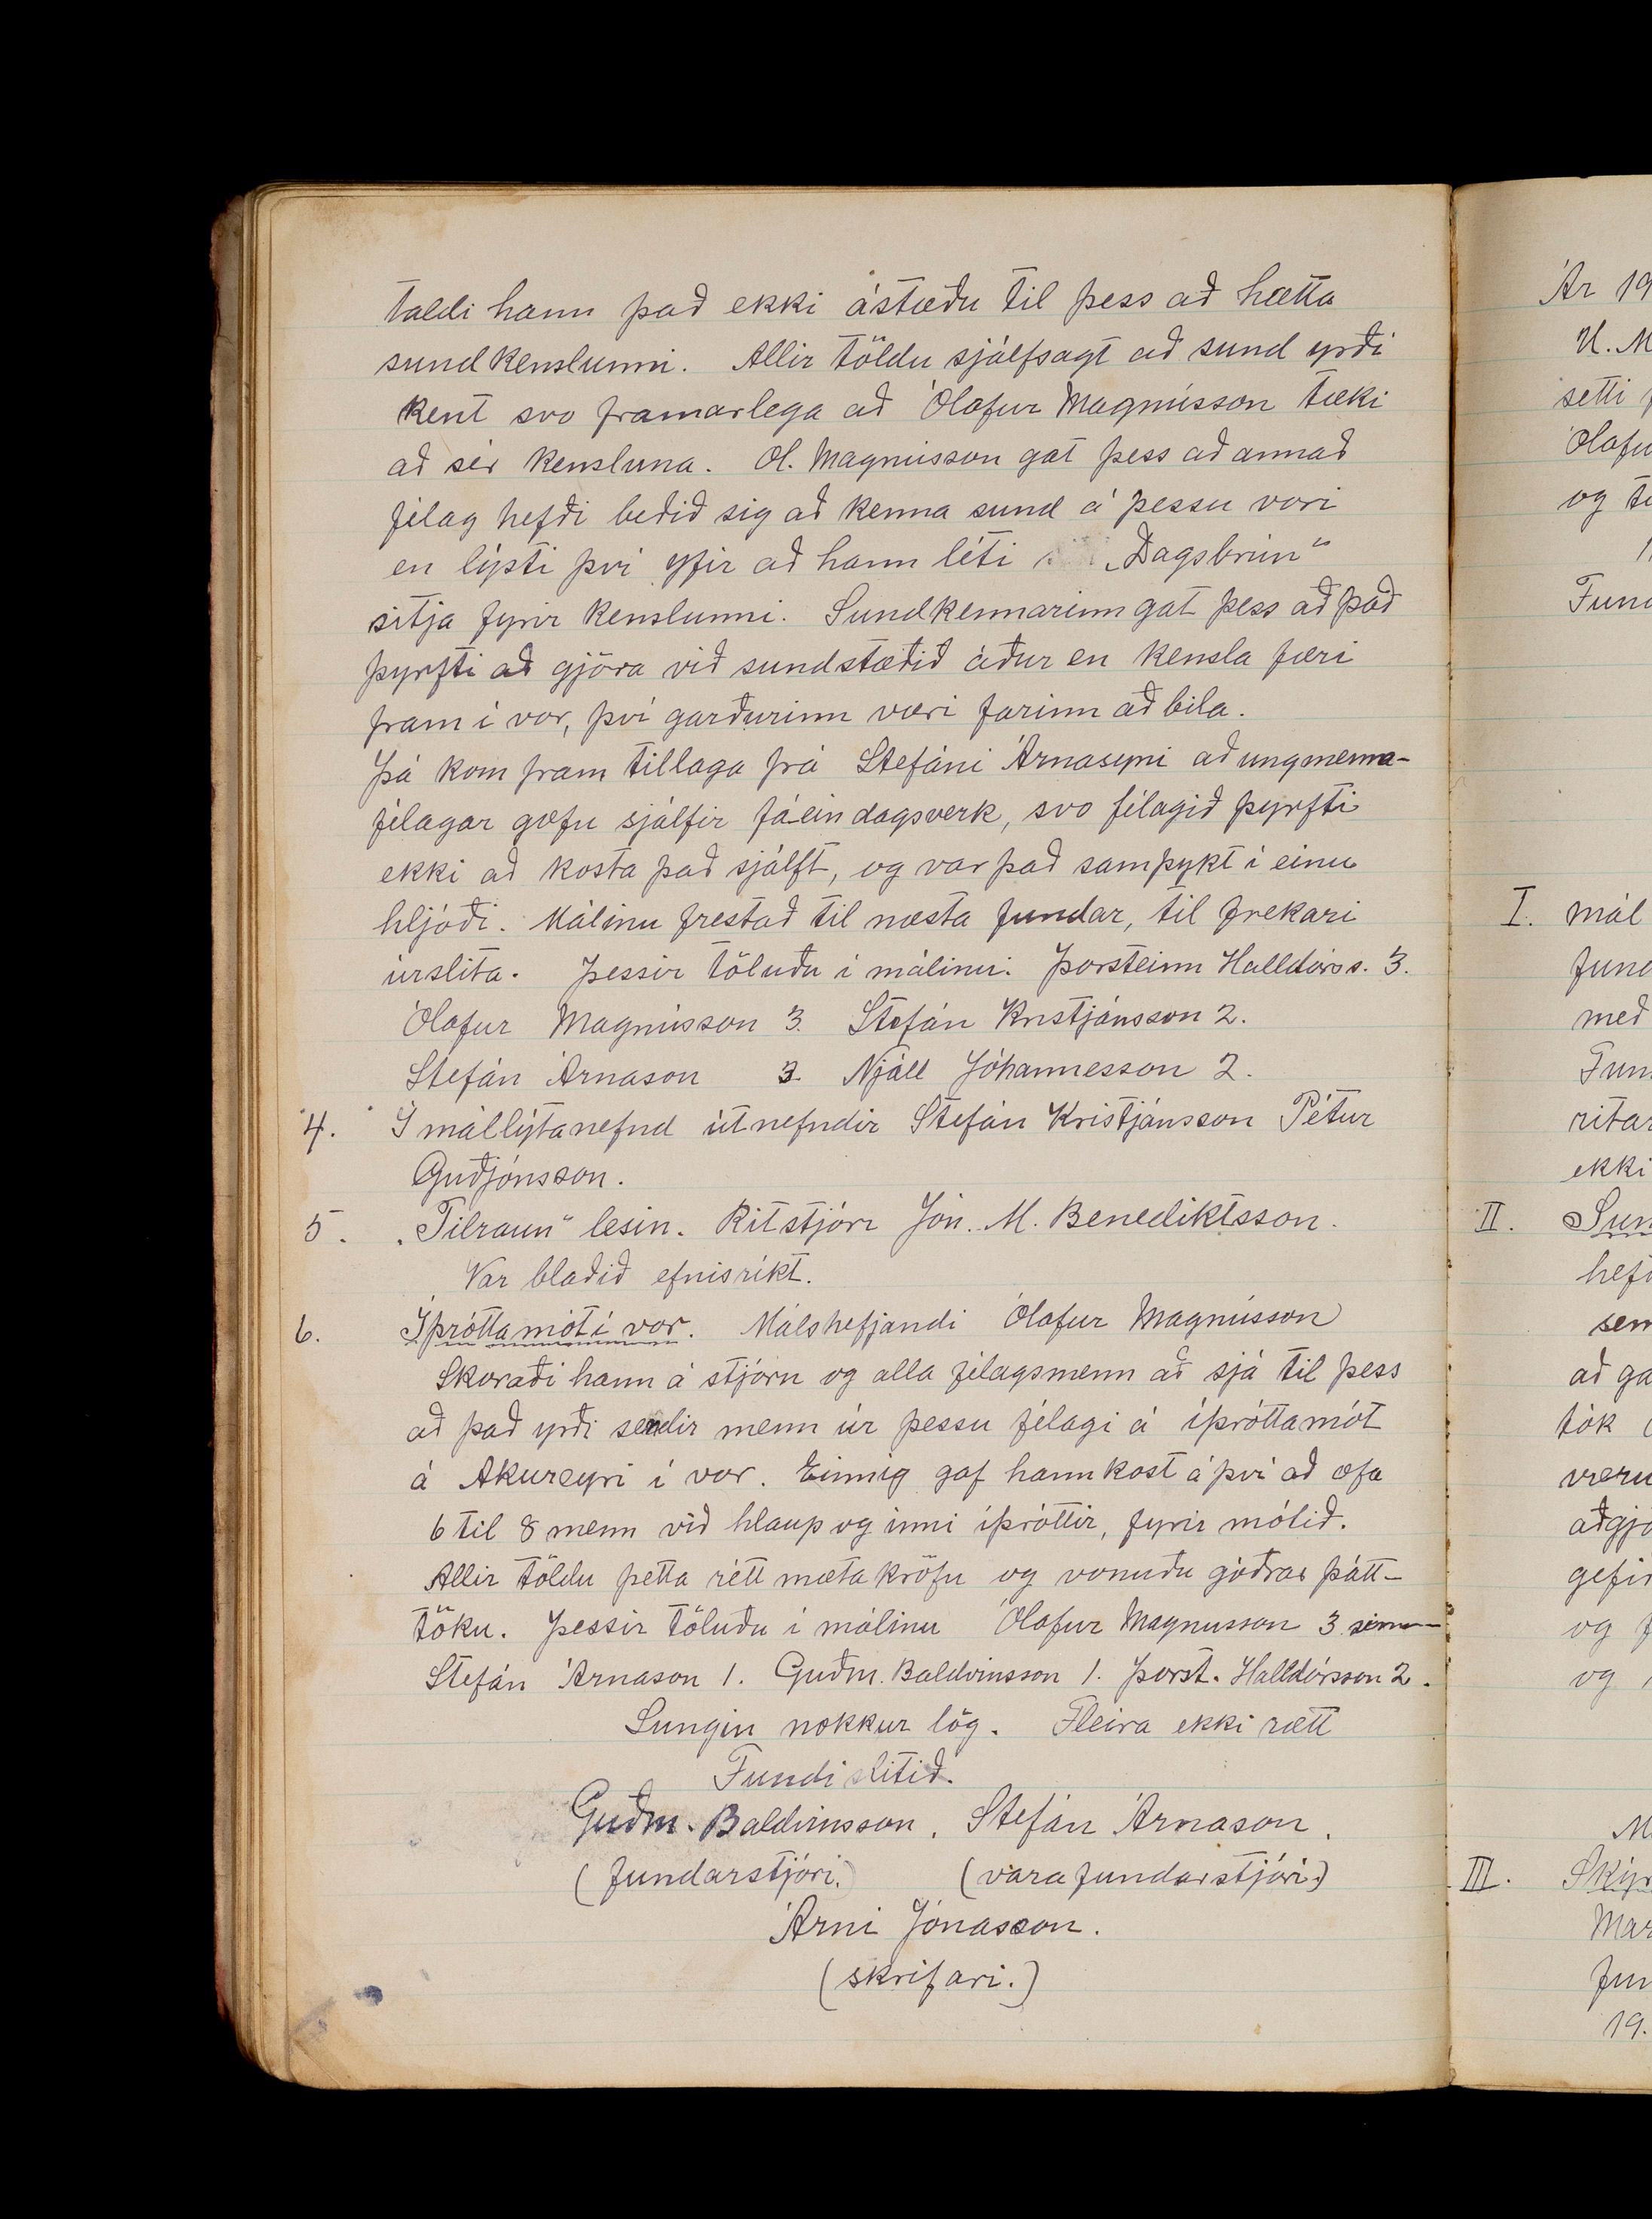 taldi hann það ekki ástæðu til þess að hætta
sundkenslunni. Allir töldu sjálfsagt að sund yrði
kent svo framarlega að Ólafur Magnússon tæki
að sér kensluna. Ól. Magnússon gat þess að annað
félag hefði beðið sig að kenna sund á þessu vori
en lýsti því yfir að hann léti „Dagsbrún“
sitja fyrir kenslunni. Sundkennarinn gat þess að það
þyrfti að gjöra við sundstæðið áður en kensla færi
fram í vor, því garðurinn væri farinn að bila.
Þá kom fram tillaga frá Stefáni Árnasyni að ungmenna-
félagar gæfu sjálfir fáein dagsverk, svo félagið þyrfti
ekki að kosta það sjálft, og var það samþykt í einu
hljóði. Málinu frestað til næsta fundar, til frekari
úrslita. Þessir töluðu í málinu: Þorsteinn Halldórss. 3.
Ólafur Magnússon 3. Stefán Kristjánsson 2.
Stefán Árnason 3. Njáll Jóhannesson 2.
4. Í mállýtanefnd útnefndir Stefán Kristjánsson Pétur
Guðjónsson.
5. „Tilraun“ lesin. Ritstjóri Jón. M. Benediktsson.
Var blaðið efnisríkt.
6. Íþróttamót í vor. Málshefjandi Ólafur Magnússon
Skoraði hann á stjórn og alla félagsmenn að sjá til þess
að það yrði sendir menn úr þessu félagi á íþróttamót
á Akureyri í vor. Einnig gaf hann kost á því að æfa
6 til 8 menn við hlaup og inni íþróttir, fyrir mótið.
Allir töldu þetta rétt mæta kröfu og vonuðu góðrar þátt-
töku. Þessir töluðu í málinu Ólafur Magnusson 3 sinn
Stefán Árnason 1. Guðm. Baldvinsson 1. Þorst. Halldórsson 2.
Sungin nokkur lög. Fleira ekki rætt
Fundi slitið.
Guðm. Baldvinsson. Stefán Árnason.
(fundarstjóri.) (varafundarstjóri.)
Árni Jónasson.
(skrifari.)
Ár 19
U. M
setti
Ólafu
og
Fund
I. mál
fund
með
Fun
ritar
ekki
II. Sun
hef
sem
að ga
tók
veru
aðgjö
gefi
og f
og
M
III. Skýr
Mar
fun
19.